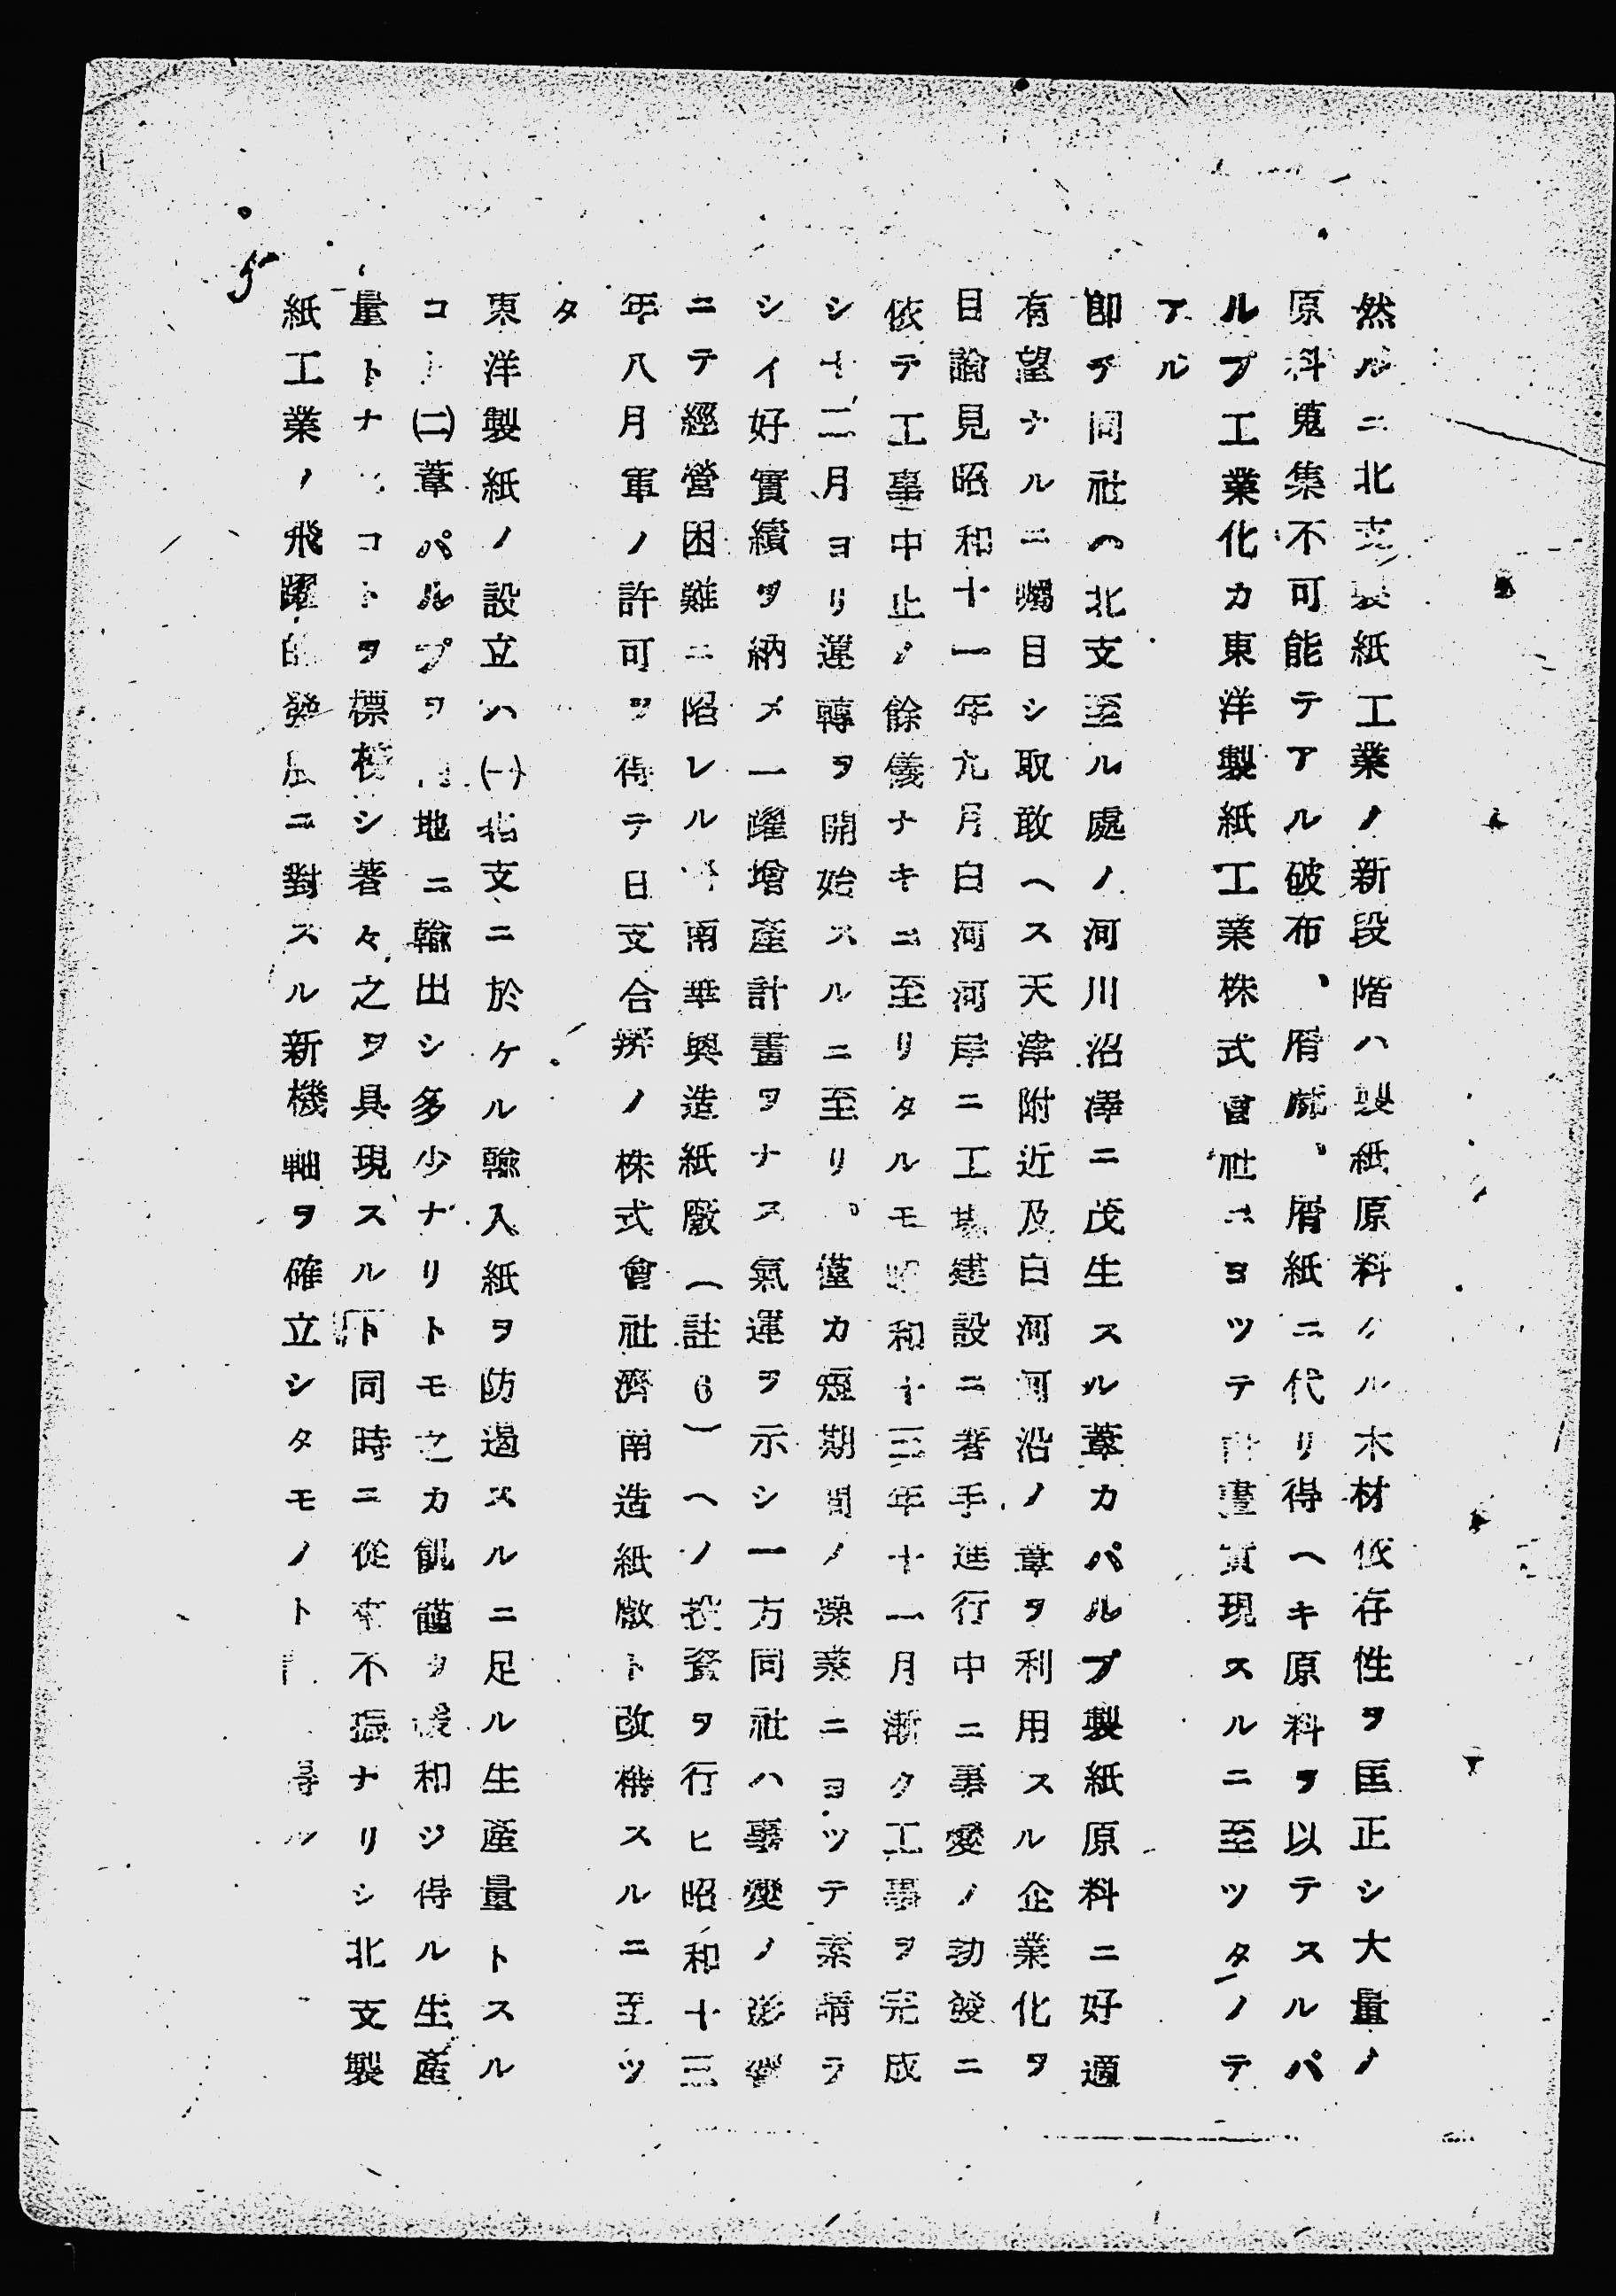 然ルニ北支製紙工業ノ新段階ハ製紙原料タル木材依存性ヲ匡正シ大量ノ
原料蒐集不可能テアル破布、屑麻、屑紙ニ代リ得ヘキ原料ヲ以テスルパ
ルプ工業化カ東洋製紙工業株式會社ニヨツテ計畫實現スルニ至ツタノテ
アル
卽チ同社ハ北支至ル處ノ河川沼澤ニ茂生スル葦カパルプ製紙原料ニ好適
有望ナルニ囑目シ取敢ヘス天津附近及白河河沿ノ葦ヲ利用スル企業化ヲ
目論見昭和十一年九月白河河岸ニ工場建設ニ著手進行中ニ事變ノ勃發ニ
依テ工事中止ノ餘儀ナキニ至リタルモ昭和十三年十一月漸ク工事ヲ完成
シ十二月ヨリ運轉ヲ開始スルニ至リ。僅カ短期間ノ操業ニヨツテ素晴ラ
シイ好實績ヲ納メ一躍增產計畫ヲナス氣運ヲ示シ一方同社ハ事變ノ影響
ニテ經營困難ニ陷レル濟南華興造紙廠(註6)ヘノ投資ヲ行ヒ昭和十三
年八月軍ノ許可ヲ得テ日支合辨ノ株式會社濟南造紙廠ト改稱スルニ至ツ
タ
東洋製紙ノ設立ハ(一)北支ニ於ケル輸入紙ヲ防遏スルニ足ル生產量トスル
コト(二)葦パルプヲ內地ニ輸出シ多少ナリトモ之カ飢饉ヲ緩和シ得ル生產
量トナスコトヲ標榜シ著々之ヲ具現スルト同時ニ從來不振ナリシ北支製
紙工業ノ飛躍的發展ニ對スル新機軸ヲ確立シタモノト 得ル
5